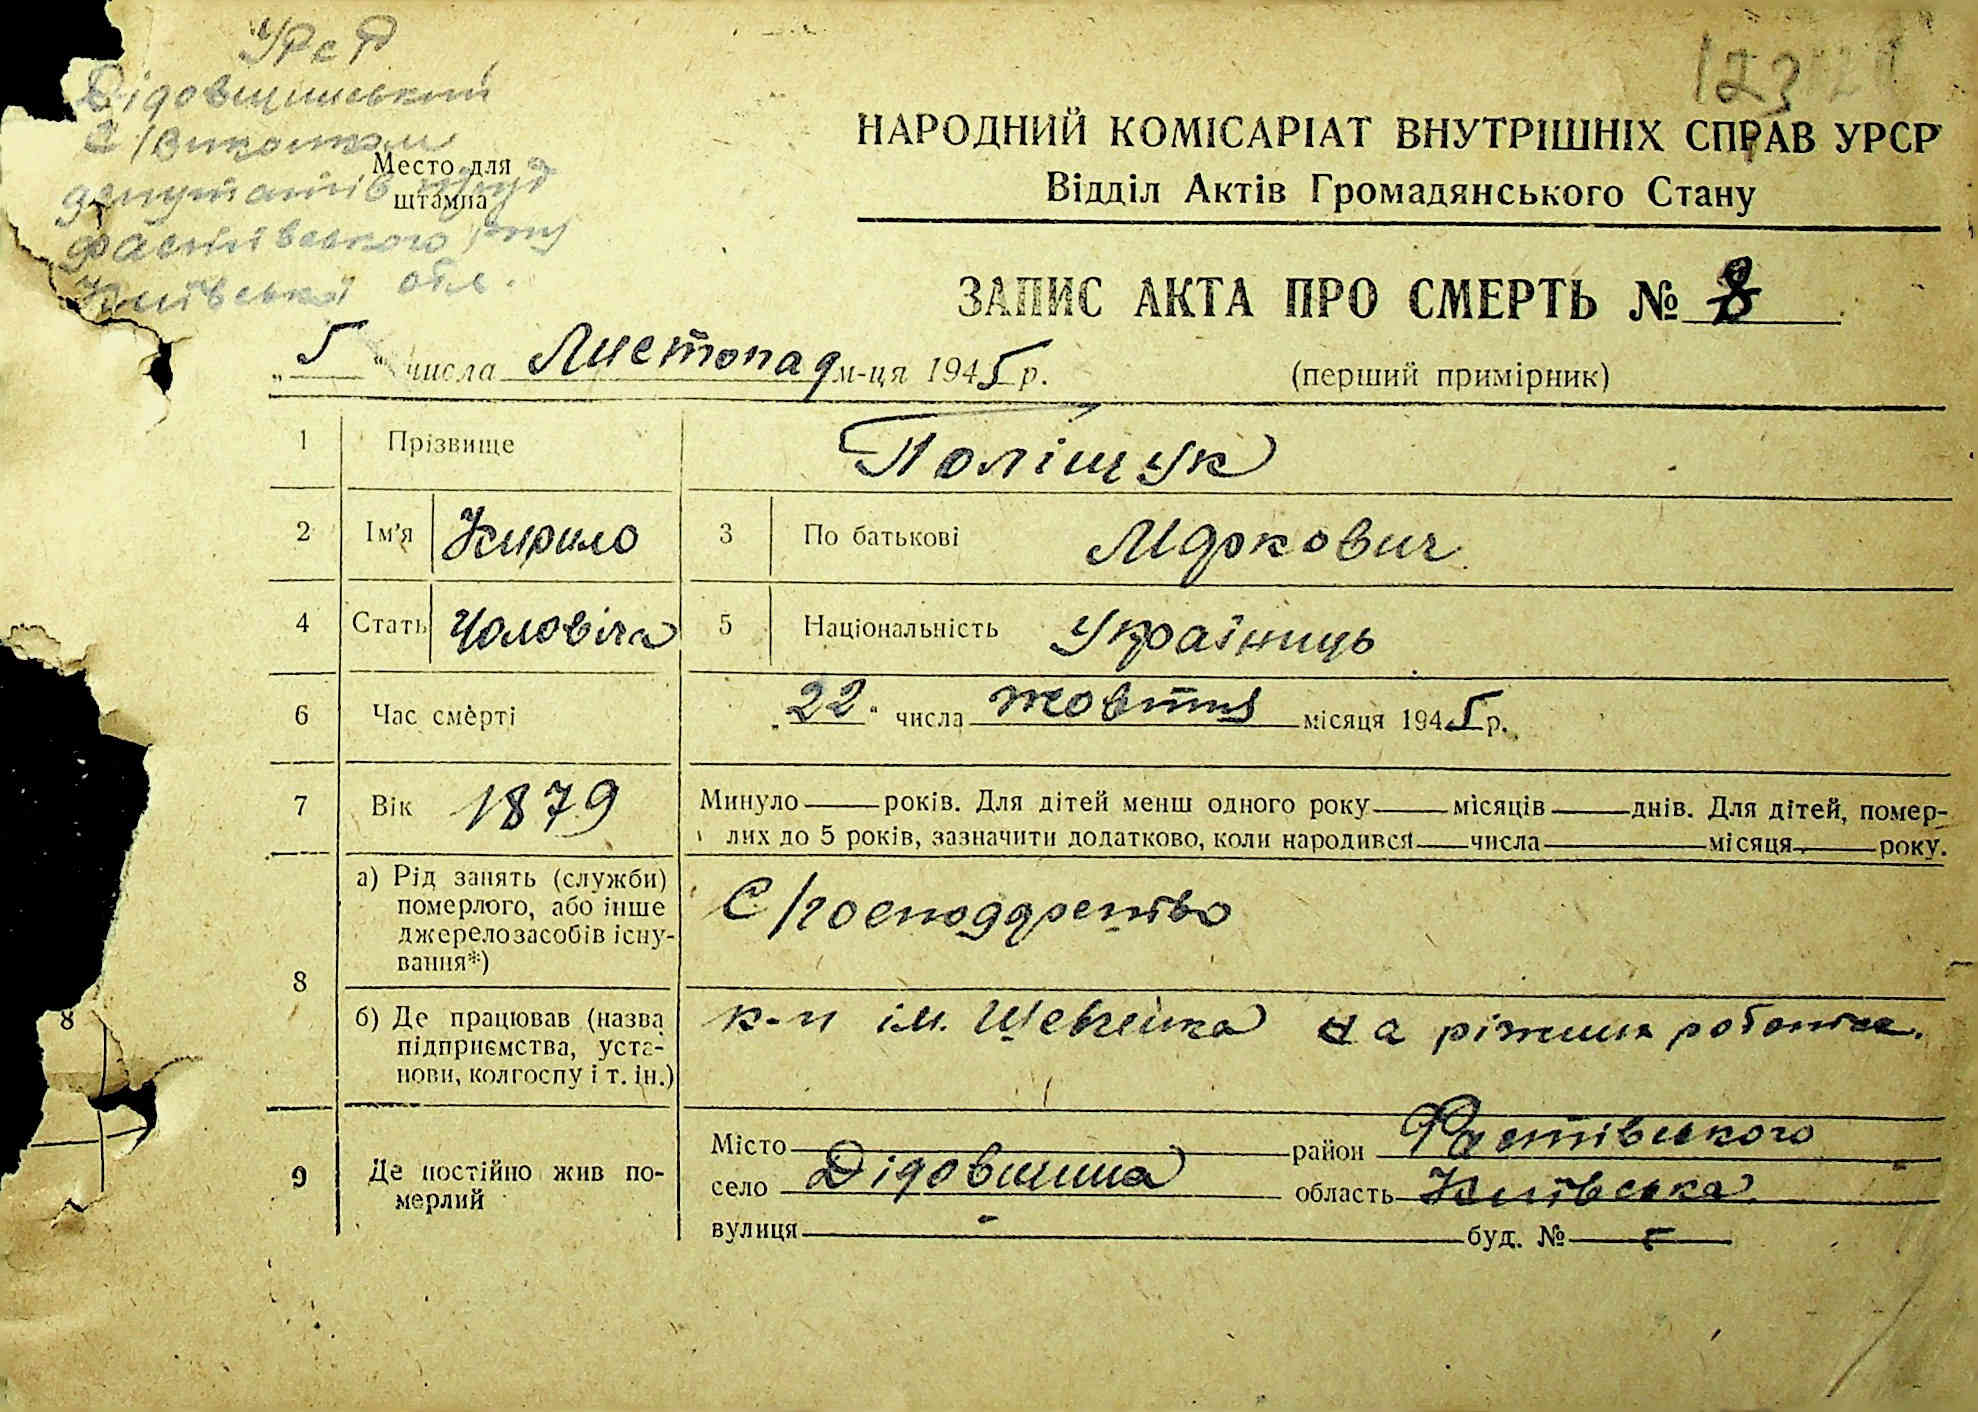 УРСР
Дідовщинський
С/виконком
депутатів труд
Фастівського р-ну
Київської обл.
Место для
штампа
123
НАРОДНИЙ КОМІСАРІАТ ВНУТРІШНІХ СПРАВ УРСР
Відділ Актів Громадянського Стану
ЗАПИС АКТА ПРО СМЕРТЬ № 8
"5" числа Листопад м-ця 1945 р.
(перший примірник)
1 Прізвище Поліщук
2 Ім'я Кирило 3 По батькові Маркович
4 Стать Чоловіча 5 Національність Українць
6 Час смерті "22" числа жовтня місяця 1945 р.
7 Вік 1879 Минуло — років. Для дітей менш одного року — місяців — днів. Для дітей, помер-
лих до 5 років, зазначити додатково, коли народився — числа — місяця — року.
8 а) Рід занять (служби)
померлого, або інше
джерело засобів існу-
вання*)
С/господарство
б) Де працював (назва
підприємства, уста-
нови, колгоспу і т. ін.)
к-п ім. Шевченка на ріжних роботах.
8
9 Де постійно жив по-
мерлий
Місто — район Фастівського
село Дідовщина область Київська
вулиця - буд. № -